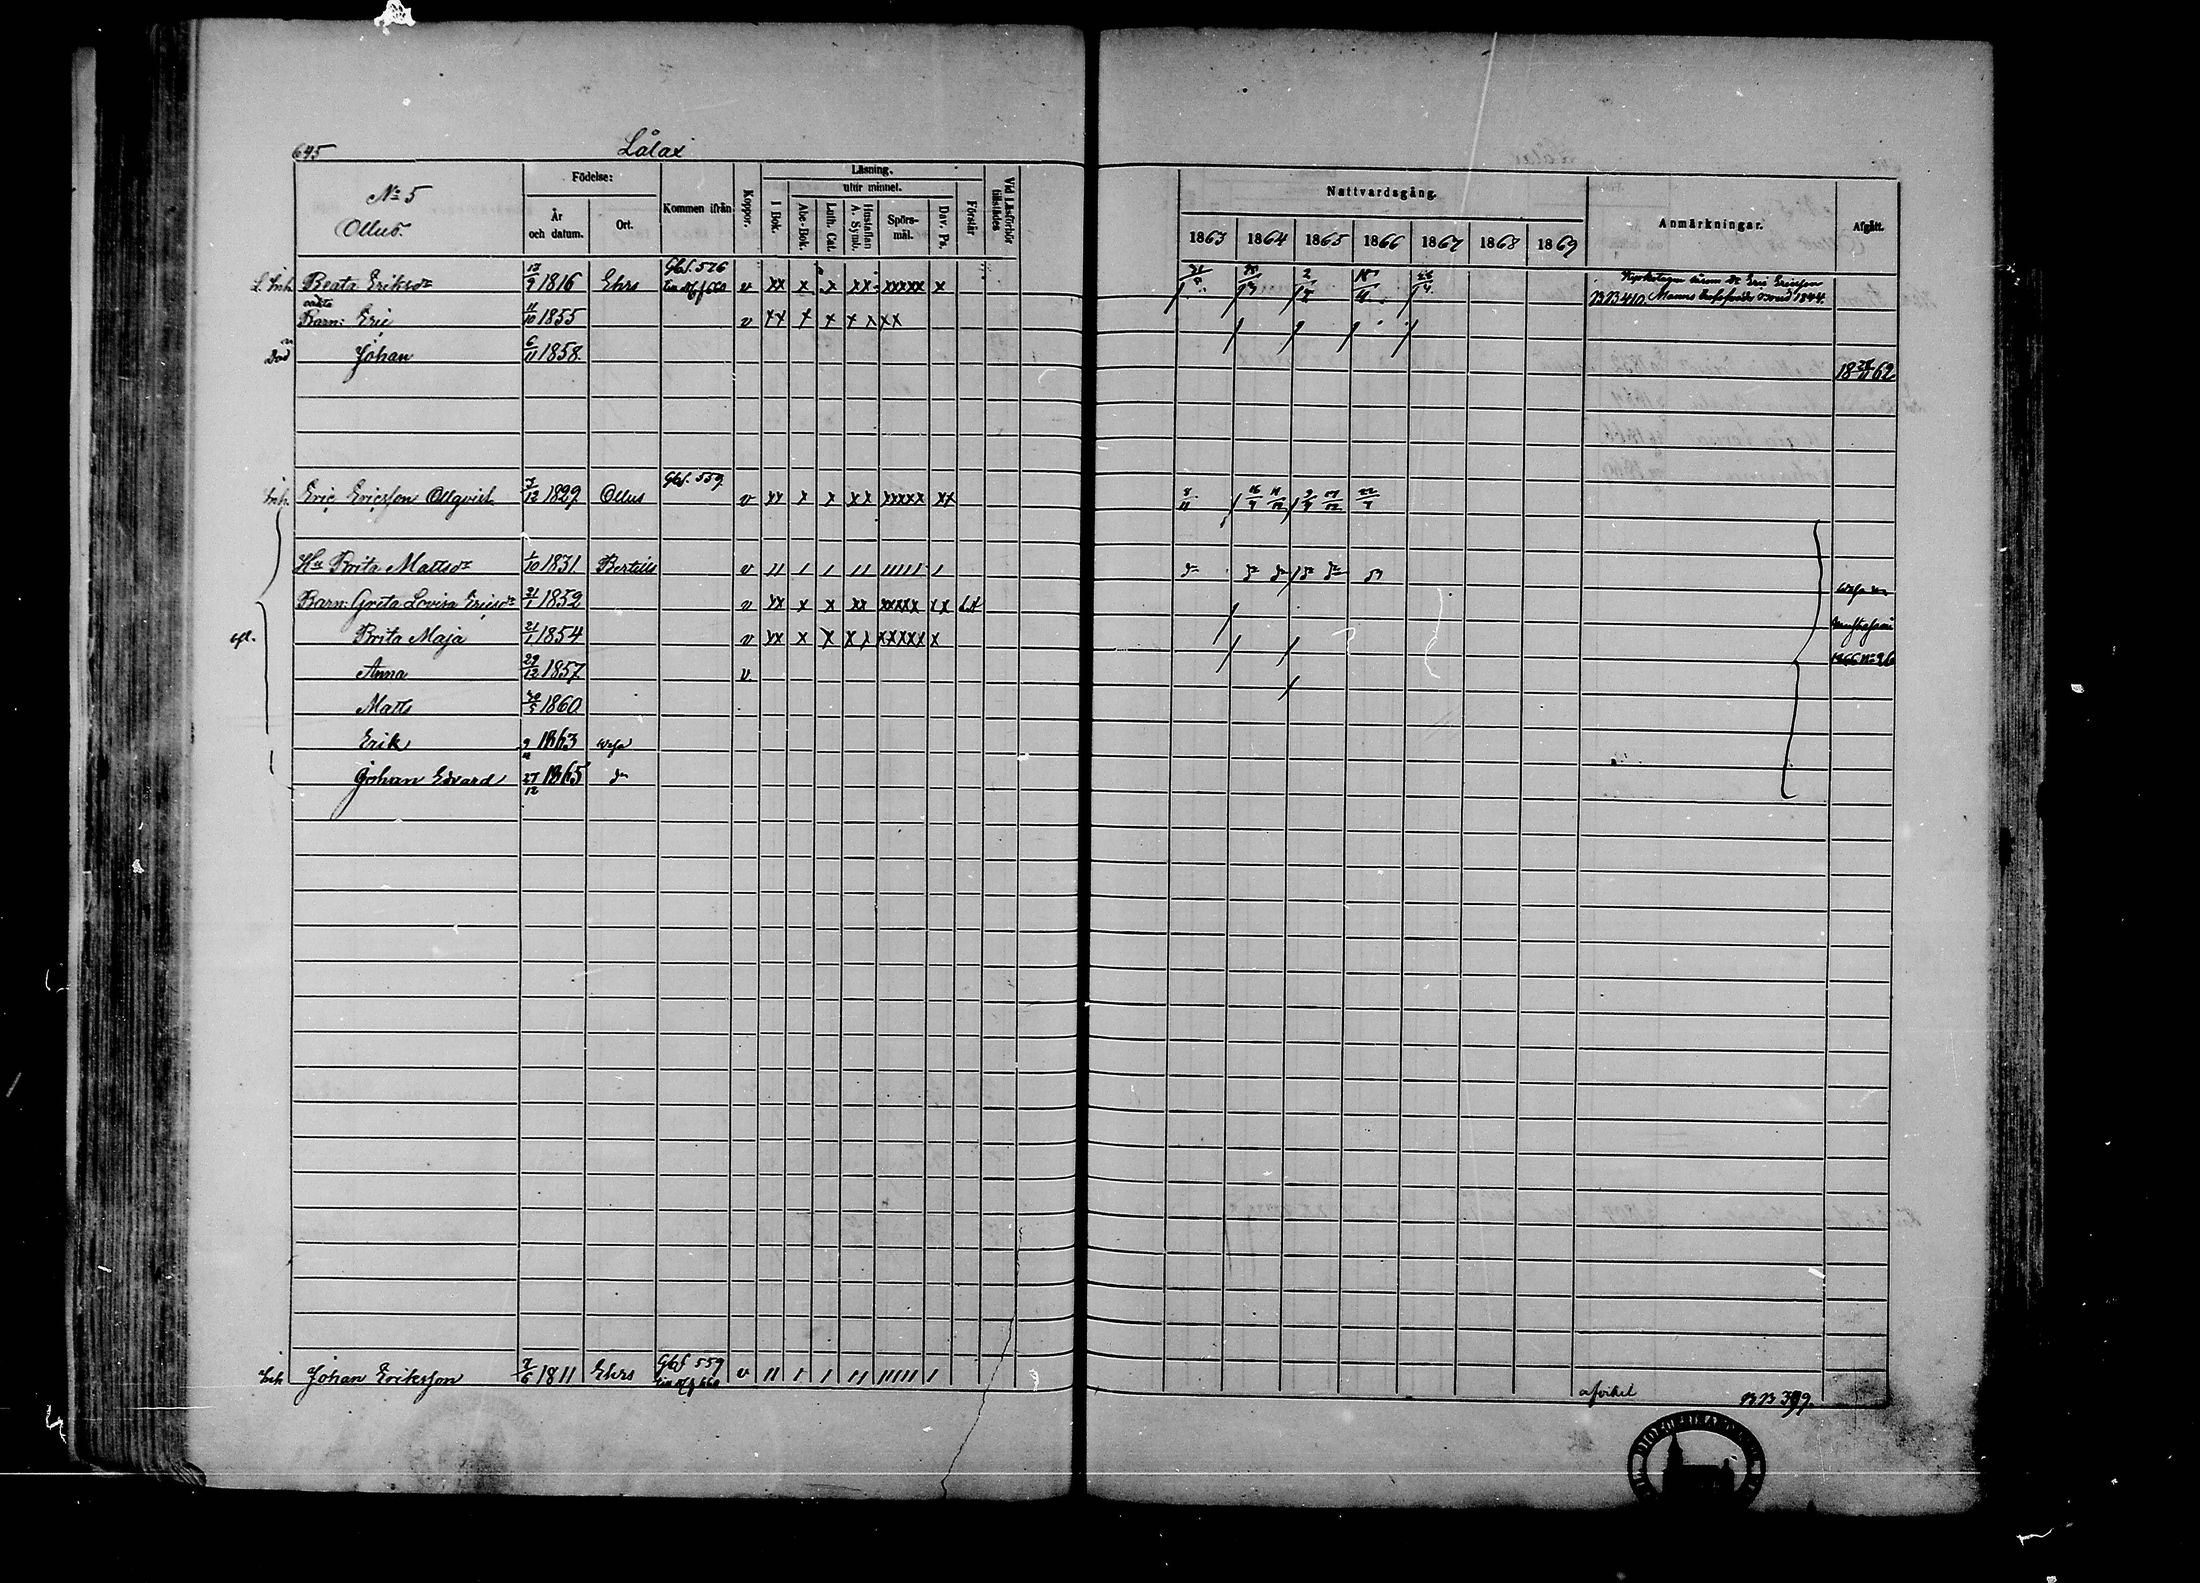 645 Lålax
No 5
Ollus.
Födelse:
År och datum.
Ort.
Kommen ifrån
Koppor.
Läsning.
I Bok.
utur minnet.
Abc-Bok.
Luth. Cat.
Hustaflan A. Symb.
Spörs-mål.
Dav. Ps.
Förstår
Vid Läsförhör tillstädes
Nattvardsgång.
1863 1864 1865 1866 1867 1868 1869
Anmärkningar.
Afgått.
Beata Eriksdr 1816 Ehrs Gbl. 526 v xx x x xx xxxxx x
BB 410. 1844.
oäkta
Barn: Eric 11/10 1855 v xx x x x x xx
Död Johan 6/11 1858 18 62
Inh. Eric Ericsson Ollqvist 7/12 1829 Ollus Gbl. 559. v xx x x xx xxxxx xx
Hu Brita Mattsdr 1/10 1831 Bertills v 11 1 1 11 11111 1
Barn: Greta Lovisa Ericsdr 21/1 1852 v xx x x xx xxxxx xx
Brita Maja 21/1 1854 v xx x x x x xxxxx x
Anna 29/12 1857 v
1866 No 26
Matts 30/5 1860
Erik 9 1863 Wasa
Johan Edvard 27/12 1865 do
Inh Johan Eriksson 7/6 1811 Ehrs Gbl 559 v 11 1 1 11 11111 1
afviket BB 399.